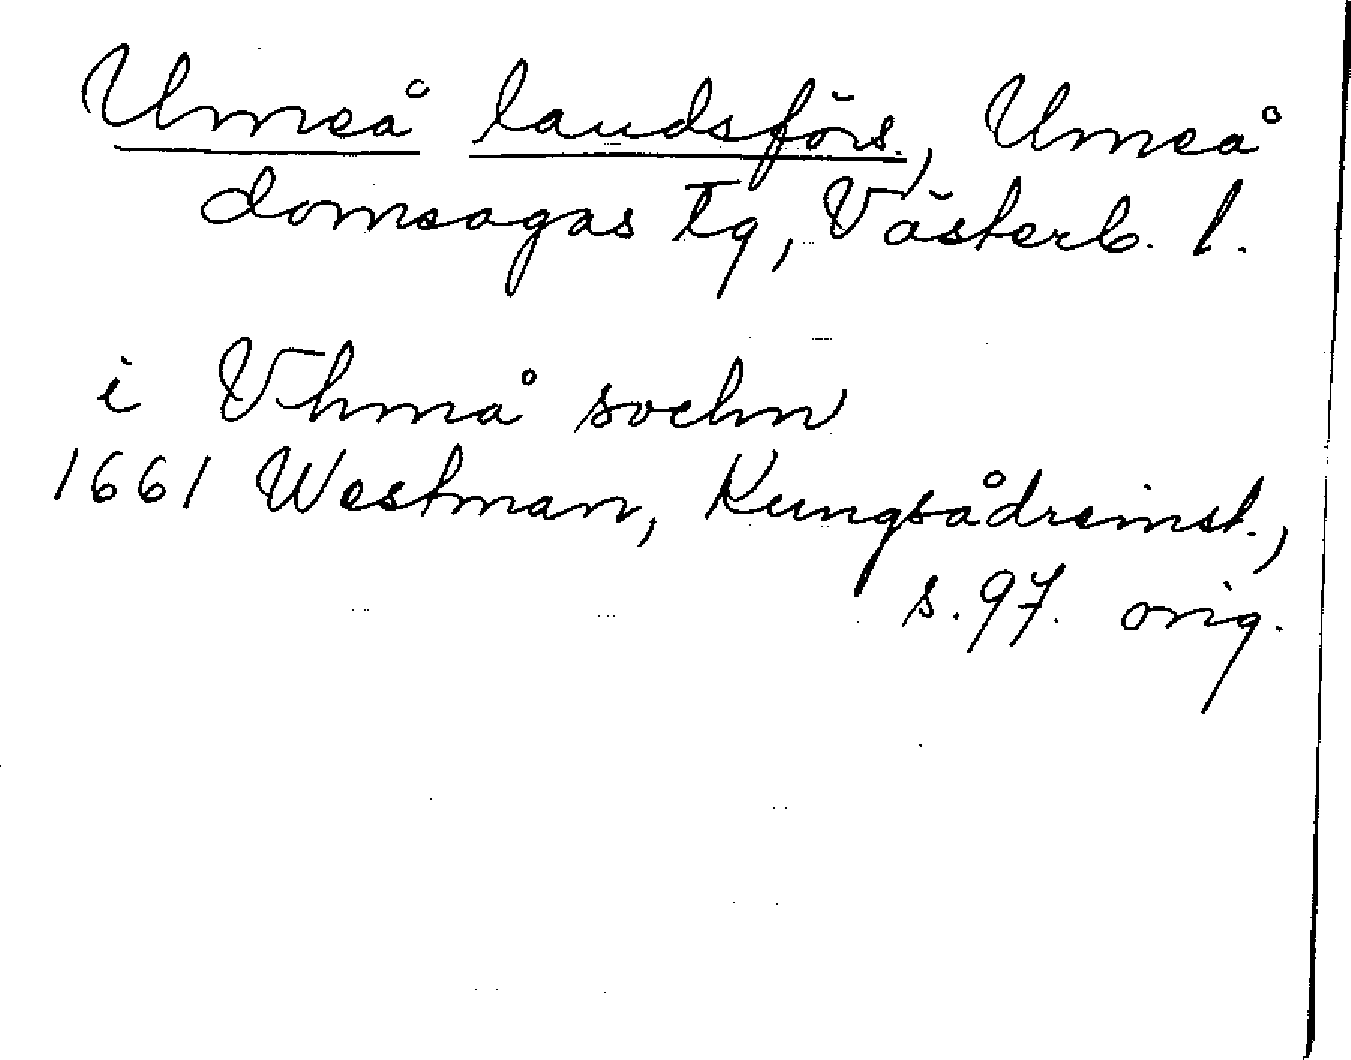 Umeå landsförs., Umeå
domsagas tg, Västerb. l.
i Vhmå sochn
1661 Westman, Kungsådreinst.,
s. 97. orig.